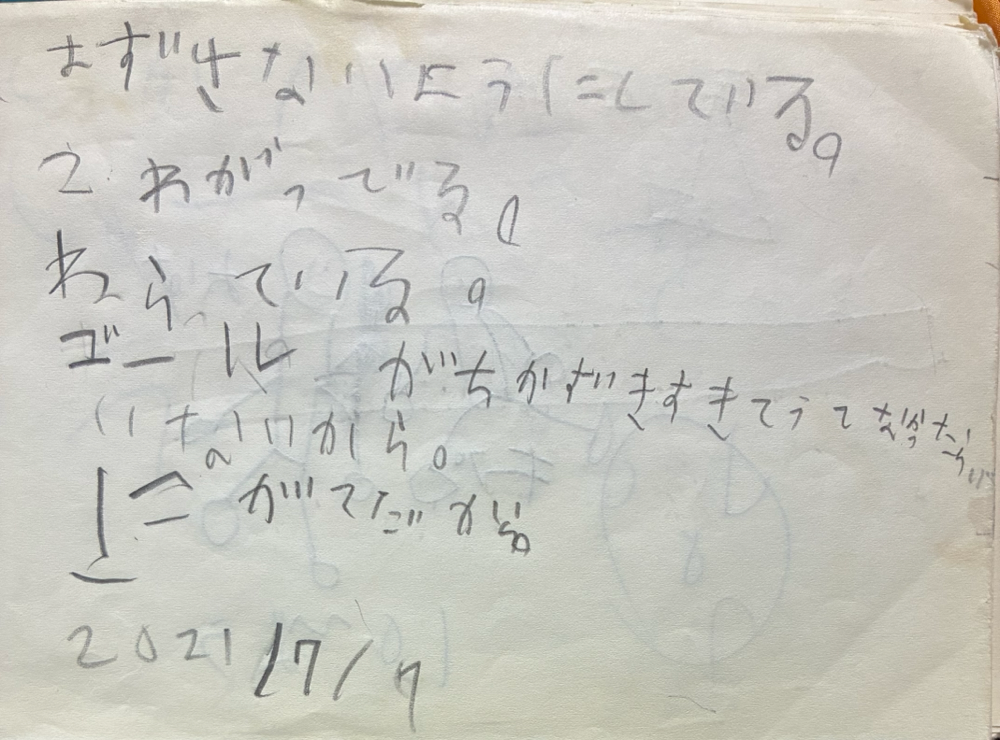 まずきないようにしている。
2 わがっでる。
わらっている。
ゴール がちかずいきすきてうて
いないから。
1二 がてだから
2021/7/7